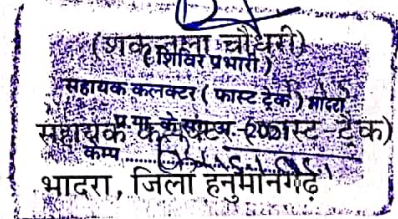 (शकुन्तला चौधरी)
(शिविर प्रभारी)
सहायक कलक्टर (फास्ट ट्रेक) भादरा
सहायक कलक्टर (फास्ट-ट्रेक)
कैम्प
भादरा, जिला हनुमानगढ़